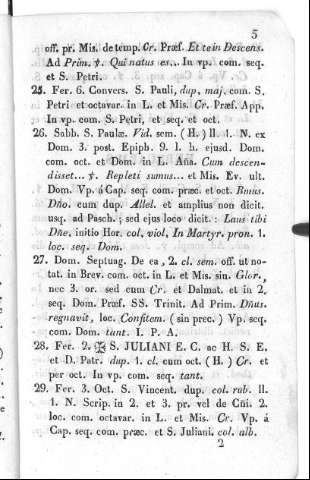 5
off. pr. Mis. de temp. Cr. Præf. Et te in Descens.
Ad Prim. ℣. Qui natus es... In vp. com. seq.
et S. Petri.
25. Fer. 6. Convers. S. Pauli, dup, maj. com. S.
Petri et octavar. in L. et Mis. Cr. Præf. App.
In vp. com. S. Petri, et seq. et oct.
26. Sabb. S. Paulæ. Vid. sem. (H.) ll. 1. N. ex
Dom. 3. post. Epiph. 9. l. h. ejusd. Dom.
com. oct. et Dom. in L. Aña. Cum descen-
disset... ℣. Repleti sumus... et Mis. Ev. ult.
Dom. Vp. á Cap. seq. com. præc. et oct. Bmus.
Dño. cum dup. Allel. et amplius non dicit.
usq. ad Pasch.; sed ejus loco dicit. : Laus tibi
Dñe. initio Hor. col, viol, In Martyr. pron. 1.
loc. seq. Dom.
27. Dom. Septuag. De ea, 2. cl. sem. off. ut no-
tat. in Brev. com. oct. in L. et Mis. sin. Glor.,
nec 3. or. sed cum Cr. et Dalmat. et in 2,
seq. Dom. Præf. SS. Trinit. Ad Prim. Dñus.
regnavit, loc. Confitem. (sin prec.) Vp. seq.
com. Dom. tant. I. P. A.
28. Fer. 2. ✠ S. JULIANI E. C. ac H. S. E.
et D. Patr. dup. 1. cl. cum oct. (H.) Cr. et
per oct. In vp. com. seq. tant.
29. Fer. 3. Oct. S. Vincent. dup. col. rub. ll.
1. N. Scrip. in 2. et 3. pr. vel de Cñi. 2.
loc. com. octavar. in L. et Mis. Cr. Vp. á
Cap. seq. com. præc. et S. Juliani. col. alb.
2